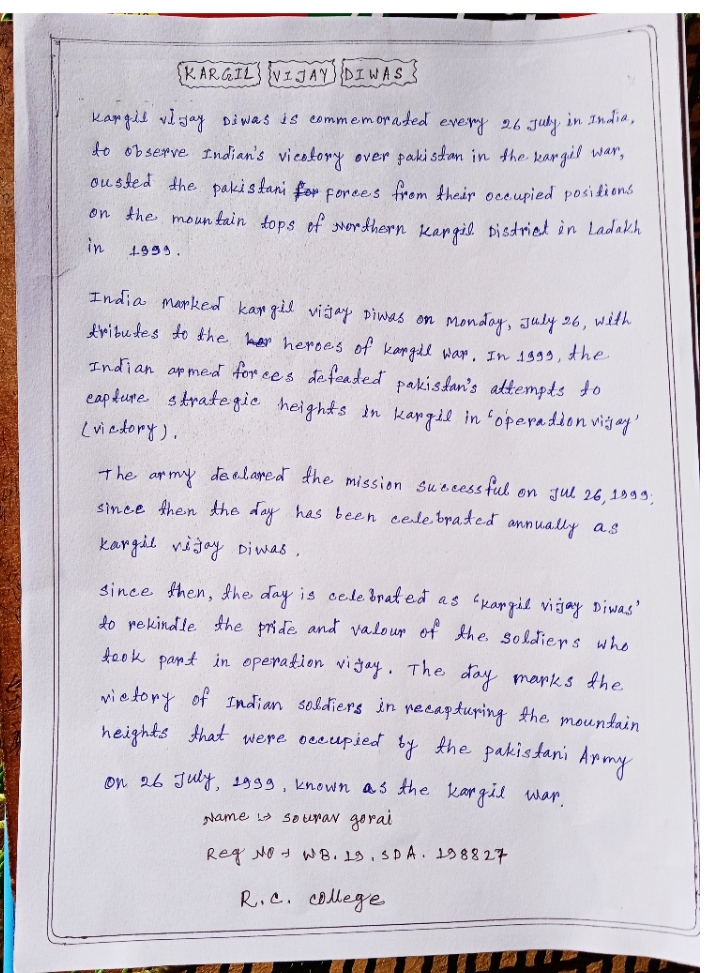 KARGIL VIJAY DIWAS
Kargil vijay Diwas is commemorated every 26 July in India,
to observe Indian's vicotory over pakistan in the kargil war,
ousted the pakistani for forces from their occupied positions
on the mountain tops of Northern Kargil District in Ladakh
in 1999.
India marked kargil vijay Diwas on Monday, July 26, with
tributes to the her heroes of kargil war. In 1999, the
Indian armed forces defeated pakistan's attempts to
capture strategic heights in kargil in 'operation vijay'
(victory).
The army declared the mission successful on Jul 26, 1999;
since then the day has been celebrated annually as
kargil vijay Diwas.
since then, the day is celebrated as 'kargil vijay Diwas'
to rekindle the pride and valour of the soldiers who
took part in operation vijay. The day marks the
victory of Indian soldiers in recapturing the mountain
heights that were occupied by the pakistani Army
on 26 July, 1999, known as the kargil war.
Name → sourav gorai
Reg No → WB.19.SDA.198827
R.C. college